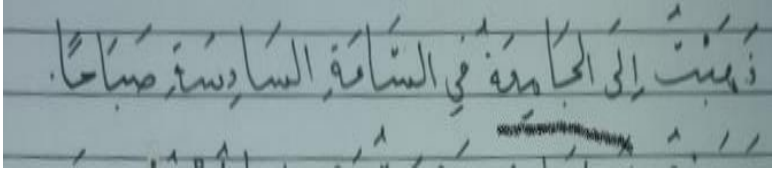 ذَهَبْتُ إِلَى الجَامِعَةِ فِي السَّاعَةِ السَّادِسَةِ صَبَاحًا.